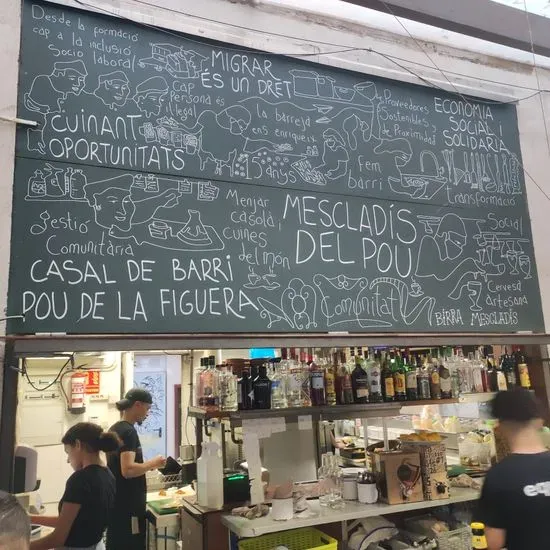 Desde la formació
cap a la inclusió
Socio laboral
MIGRAR
ÉS UN DRET
Cap
Persona és
Ilegal
CUINANT
OPORTUNITATS
La barreja
ens enriqueix
anys
Fem
barri
Proveedores
Sostenibles
de Proximidad
ECONOMIA
SOCIAL i
SOLIDÀRIA
Transformació
Social
Gestio
Comunitària
Menjar
casolà
cuines
del món
MESCLADÍS
DEL POU
CASAL DE BARRI
POU DE LA FIGUERA
Comunitat
Cervesa
Artesana
BIRRA MESCLADÍS